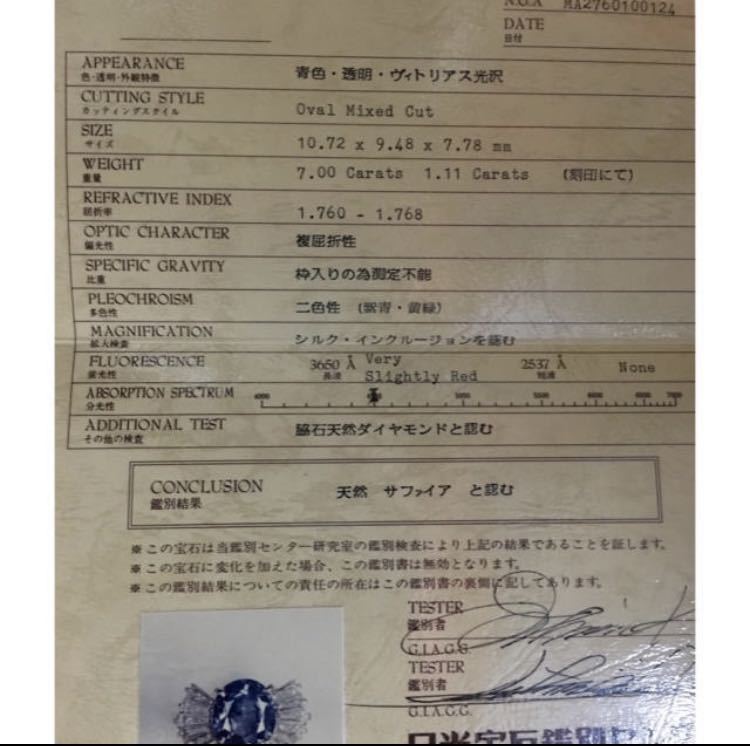 N.G.A MA2760100124
DATE
日付
APPEARANCE
色・透明・外観特徴
青色・透明・ヴィトリアス光沢
CUTTING STYLE
カッティングスタイル
Oval Mixed Cut
SIZE
サイズ
10.72 x 9.48 x 7.78 mm
WEIGHT
重量
7.00 Carats 1.11 Carats (刻印にて)
REFRACTIVE INDEX
屈折率
1.760 - 1.768
OPTIC CHARACTER
偏光性
複屈折性
SPECIFIC GRAVITY
比重
枠入りの為測定不能
PLEOCHROISM
多色性
二色性 (紫青・黄緑)
MAGNIFICATION
拡大検査
シルク・インクルージョンを認む
FLUORESCENCE
蛍光性
3650 Å Very
長波 Slightly Red
2537 Å None
短波
ABSORPTION SPECTRUM
分光性
4000 5000 5500 6000 6500 7000
ADDITIONAL TEST
その他の検査
脇石天然ダイヤモンドと認む
CONCLUSION
鑑別結果
天然 サファイア と認む
※この宝石は当鑑別センター研究室の鑑別検査により上記の結果であることを証します。
※この宝石に変化を加えた場合、この鑑別書は無効となります。
※この鑑別結果についての責任の所在はこの鑑別書の裏側に記してあります。
TESTER
鑑別者
G.I.A.G.G.
TESTER
鑑別者
G.I.A.G.G.